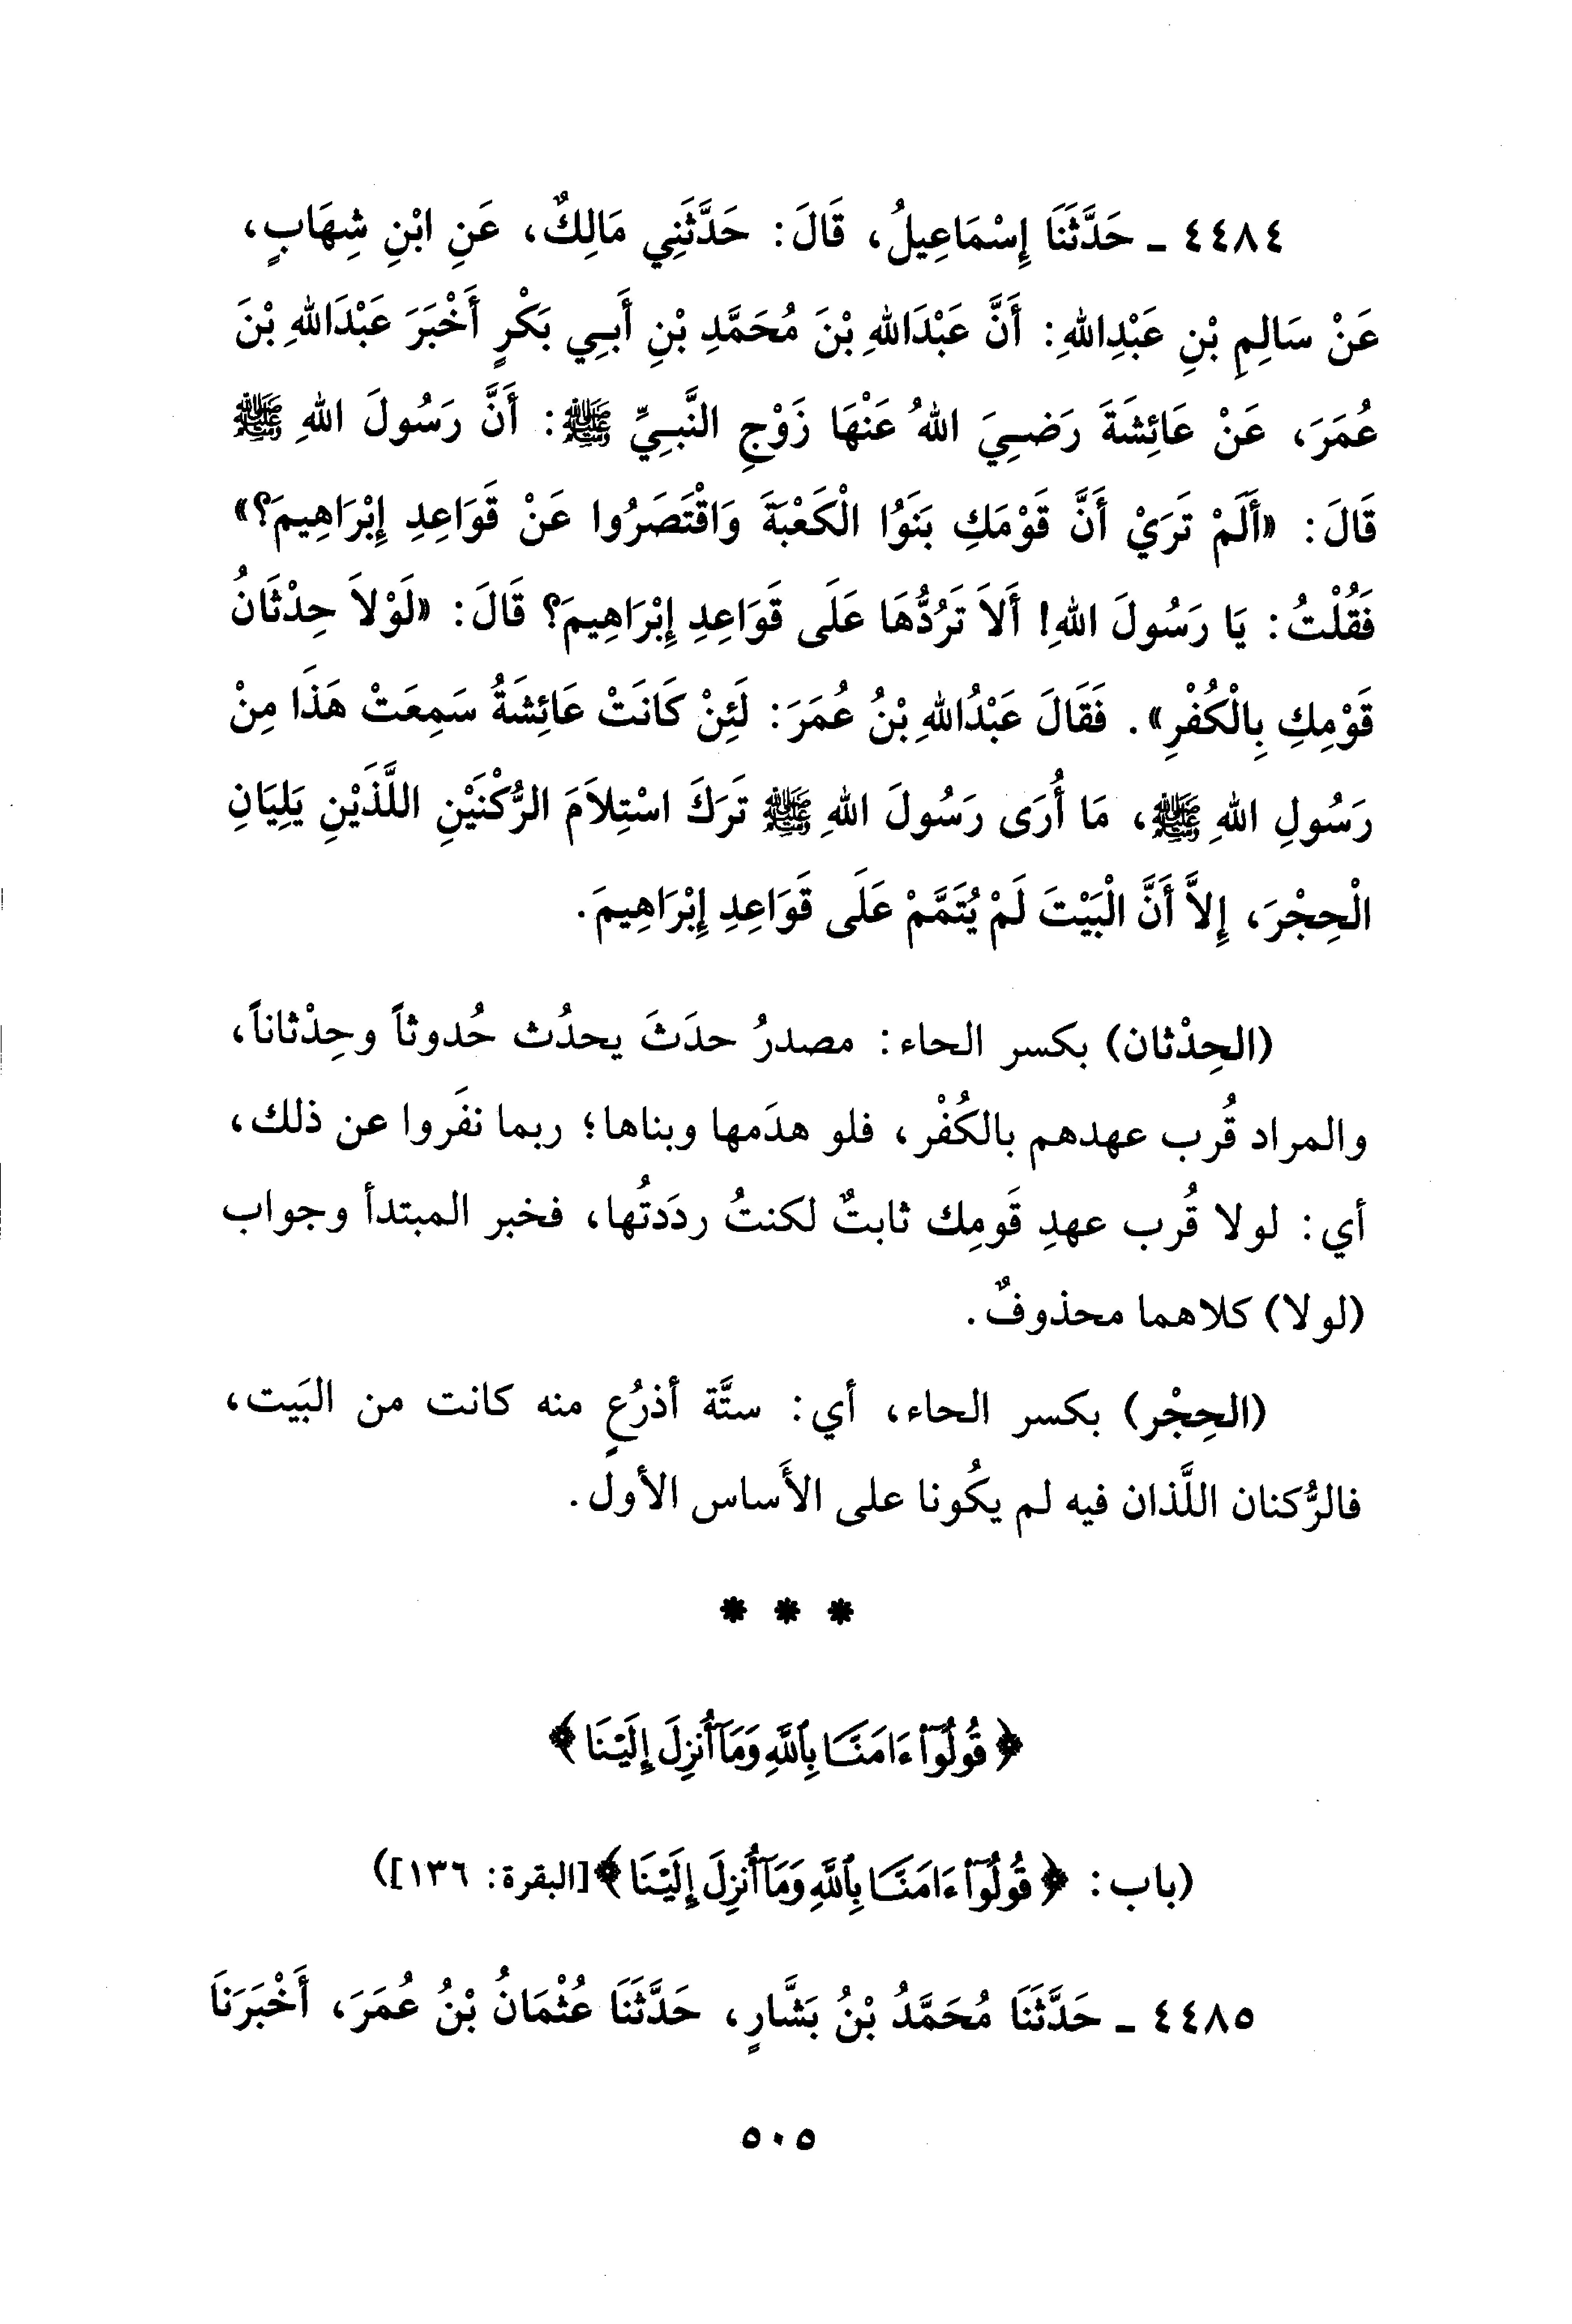 ٤٤٨٤ ـ حَدَّثَنَا إِسْمَاعِيلُ، قَالَ: حَدَّثَنِي مَالِكٌ، عَنِ ابْنِ شِهَابٍ،
عَنْ سَالِمِ بْنِ عَبْدِاللهِ: أَنَّ عَبْدَاللهِ بْنَ مُحَمَّدِ بْنِ أَبِي بَكْرٍ أَخْبَرَ عَبْدَاللهِ بْنَ
عُمَرَ، عَنْ عَائِشَةَ رَضِيَ اللهُ عَنْهَا زَوْجِ النَّبِيِّ ﷺ: أَنَّ رَسُولَ اللهِ ﷺ
قَالَ: «أَلَمْ تَرَيْ أَنَّ قَوْمَكِ بَنَوُا الْكَعْبَةَ وَاقْتَصَرُوا عَنْ قَوَاعِدِ إِبْرَاهِيمَ؟»
فَقُلْتُ: يَا رَسُولَ اللهِ! أَلاَ تَرُدُّهَا عَلَى قَوَاعِدِ إِبْرَاهِيمَ؟ قَالَ: «لَوْلاَ حِدْثَانُ
قَوْمِكِ بِالْكُفْرِ». فَقَالَ عَبْدُاللهِ بْنُ عُمَرَ: لَئِنْ كَانَتْ عَائِشَةُ سَمِعَتْ هَذَا مِنْ
رَسُولِ اللهِ ﷺ، مَا أُرَى رَسُولَ اللهِ ﷺ تَرَكَ اسْتِلاَمَ الرُّكْنَيْنِ اللَّذَيْنِ يَلِيَانِ
الْحِجْرَ، إِلاَّ أَنَّ الْبَيْتَ لَمْ يُتَمَّمْ عَلَى قَوَاعِدِ إِبْرَاهِيمَ.
(الحِدْثان) بكسر الحاء: مصدرُ حدَثَ يحدُث حُدوثاً وحِدْثاناً،
والمراد قُرب عهدهم بالكُفْر، فلو هدَمها وبناها؛ ربما نفَروا عن ذلك،
أي: لولا قُرب عهدِ قَومِك ثابتٌ لكنتُ ردَدتُها، فخبر المبتدأ وجواب
(لولا) كلاهما محذوفٌ.
(الحِجْر) بكسر الحاء، أي: ستَّة أذرُعٍ منه كانت من البَيت،
فالرُّكنان اللَّذان فيه لم يكُونا على الأَساس الأول.
* * *
﴿قُولُوٓا۟ ءَامَنَّا بِٱللَّهِ وَمَآ أُنزِلَ إِلَيْنَا﴾
(باب: ﴿قُولُوٓا۟ ءَامَنَّا بِٱللَّهِ وَمَآ أُنزِلَ إِلَيْنَا﴾[البقرة: ١٣٦])
٤٤٨٥ ـ حَدَّثَنَا مُحَمَّدُ بْنُ بَشَّارٍ، حَدَّثَنَا عُثْمَانُ بْنُ عُمَرَ، أَخْبَرَنَا
٥٠٥